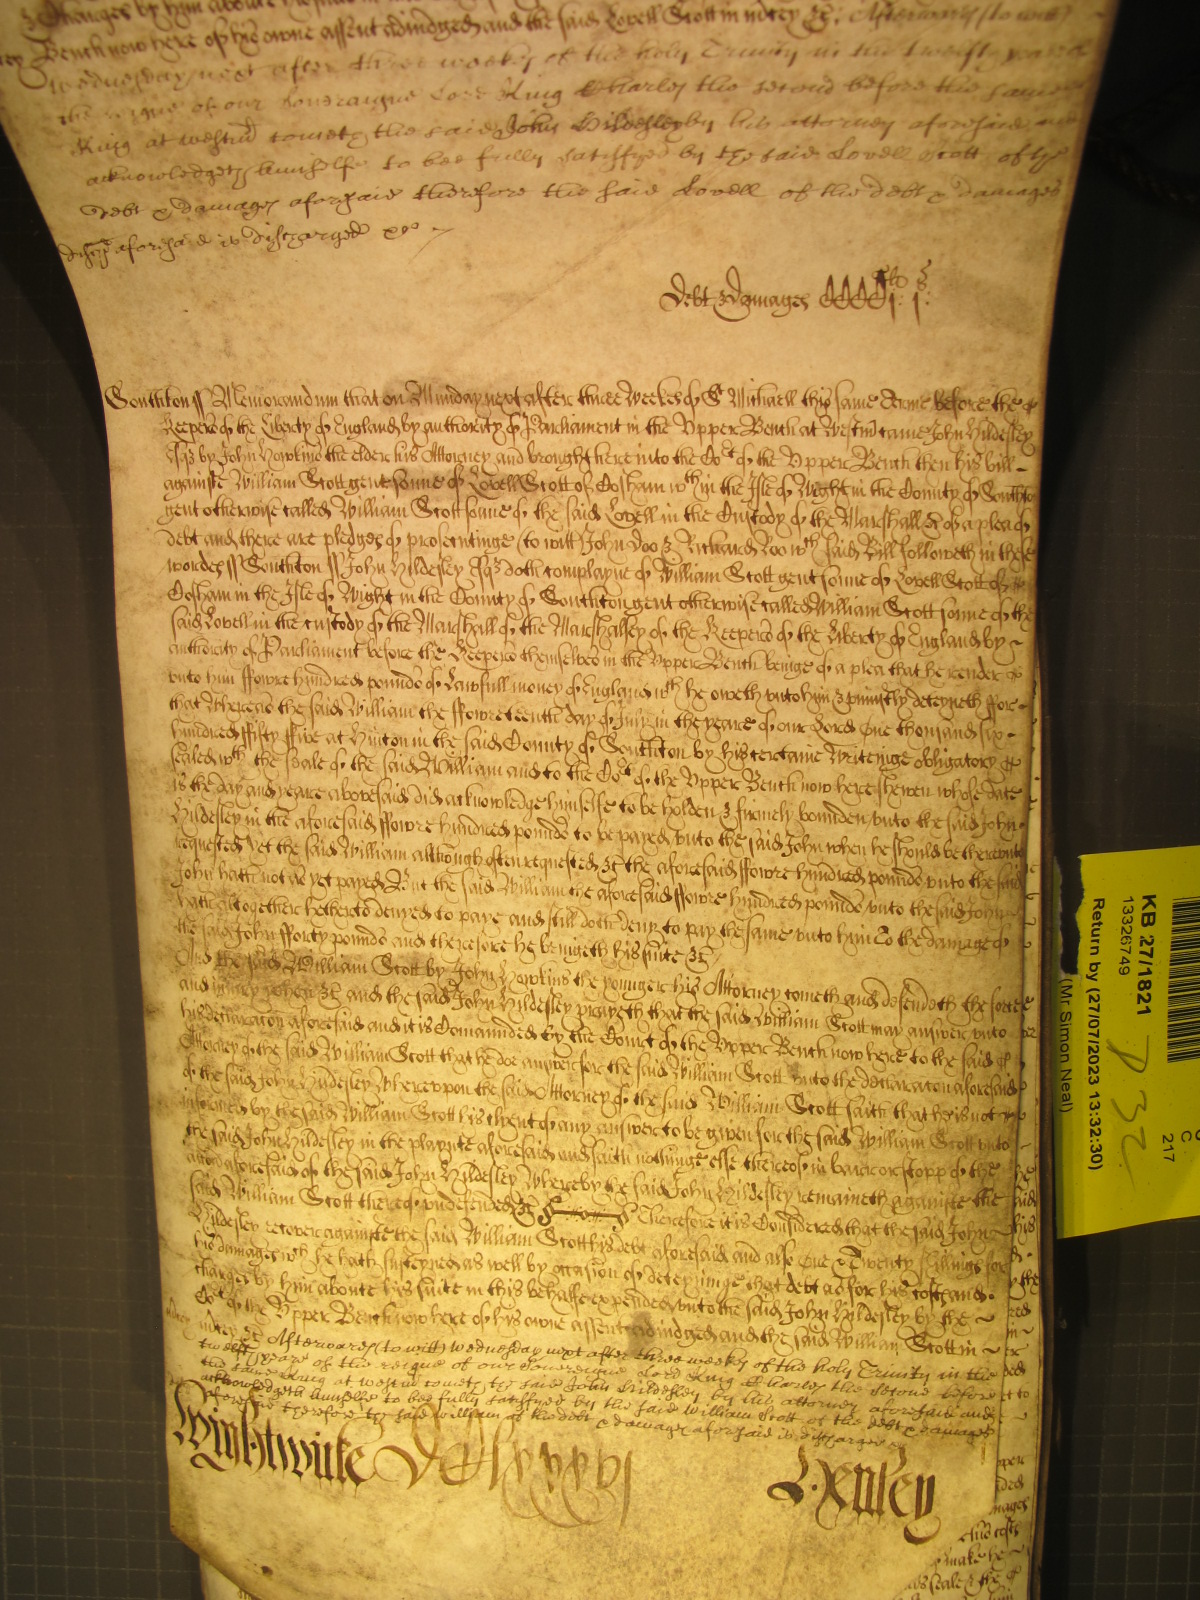 Charges by him aboute his suite in this
Bench now here of his owne assent adiudged and the said Lovell Scott in m'cey &c. Afterwards (to witt)
wednesday next after three weekes of the holy Trinity in the twelft yeare of
the reigne of our Soveraigne Lord King Charles the second before the same
King at westm' cometh the said John Hildesley by his attorney aforesaid and
acknowledgeth himselfe to bee fully satisfyed by the said Lovell Scott of the
debt & damages aforsaid therefore the said Lovell of the debt & damages
aforsaid is discharged &c
Debt & damages CCCCj li j s
Southton ss Memorandum that on Munday next after three Weekes of St Michaell this same Terme before the
Keepers of the Liberty of England by authority of Parliament in the Upper Bench at Westm' came John Hildesley
Esqr by John Howkins the elder his Attorney and brought here into the Cort of the Upper Bench then his bill
againste William Scott gent sonne of Lovell Scott of Cosham wth in the Isle of Wight in the County of Southton
gent otherwise called William Scott sonne of the said Lovell in the Custody of the Marshall &c of a plea of
debt and there are pledges of prosecutinge (to witt) John Doo & Richard Roo wch said Bill followeth in these
wordes ss Southton ss John Hildesley Esqr doth complayne of William Scott gent sonne of Lovell Scott of
Cosham in the Isle of Wight in the County of Southton gent otherwise called William Scott sonne of the
said Lovell in the custody of the Marshall of the Marshalsey of the Keepers of the Liberty of England by
authority of Parliament before the Keepers themselves in the Upper Bench beinge of a plea that he render
unto him ffowre hundred pounds of Lawfull money of England wch he oweth unto him & uniustly deteyneth ffor
that Whereas the said William the ffowreteenth day of July in the yeare of our Lord One thousand six
hundred ffifty ffive at Hinton in the said County of Southton by his certaine Writeinge obligatory
sealed wth the seale of the said William and to the Cort of the Upper Bench now here shewen whose date
is the day and yeare abovesaid did acknowledge himselfe to be holden & firmely bounden unto the said John
Hildesley in the aforesaid ffowre hundred pounds to be payed unto the said John when he should be thereunto
requested Yet the said William although often requested &c the aforesaid ffowre hundred pounds unto the said
John hath not as yet payed But the said William the aforesaid ffowre hundred pounds unto the said John
hath altogether hetherto denyed to paye and still doth deny to pay the same unto him To the damage of
the said John fforty pounds and therefore he bringeth his suite &c
And the said William Scott by John Howkins the younger his Attorney cometh and defendeth the force
and iniury when &c and the said John Hildesley prayeth that the said William Scott may answer unto
his declaracon aforesaid and it is Comanded by the Court of the Upper Bench now here to the said
Attorney of the said William Scott that he doe answer for the said William Scott unto the declaracon aforesaid
of the said John Hildesley Whereuppon the said Attorney of the said William Scott saith that he is not
informed by the said William Scott his client of any answer to be given for the said William Scott unto
the said John Hildesley in the playnte aforesaid and saith nothinge else thereof in barr or stopp of the
accon aforesaid of the said John Hildesley Whereby the said John Hildesley remaineth againste the
said William Scott thereof undefended &c Therefore it is Considered that the said John
Hildesley recover againste the said William Scott his debt aforesaid and also One & Twenty shillings for
his damages wch he hath susteyned as well by occasion of deteyninge that debt as for his costs and
charges by him aboute his suite in this behalfe expended unto the said John Hildesley by the
Cort of the Upper Bench now here of his owne assent adiudged and the said William Scott in
m'cey &c Afterwards (to witt) wednesday next after three weekes of the holy Trinity in the
twelft yeare of the reigne of our Soveraigne Lord King Charles the second before
the same King at westm' cometh the said John Hildesley by his attorney aforesaid and
acknowledgeth himselfe to bee fully satisfyed by the said William Scott of the debt & damages
aforsaid therefore the said William of the debt & damages aforsaid is discharged &c
Wightwicke
Henley
KB 27/1821
13326749
Return by (27/07/2023 13:32:30)
(Mr. Simon Neal)
217